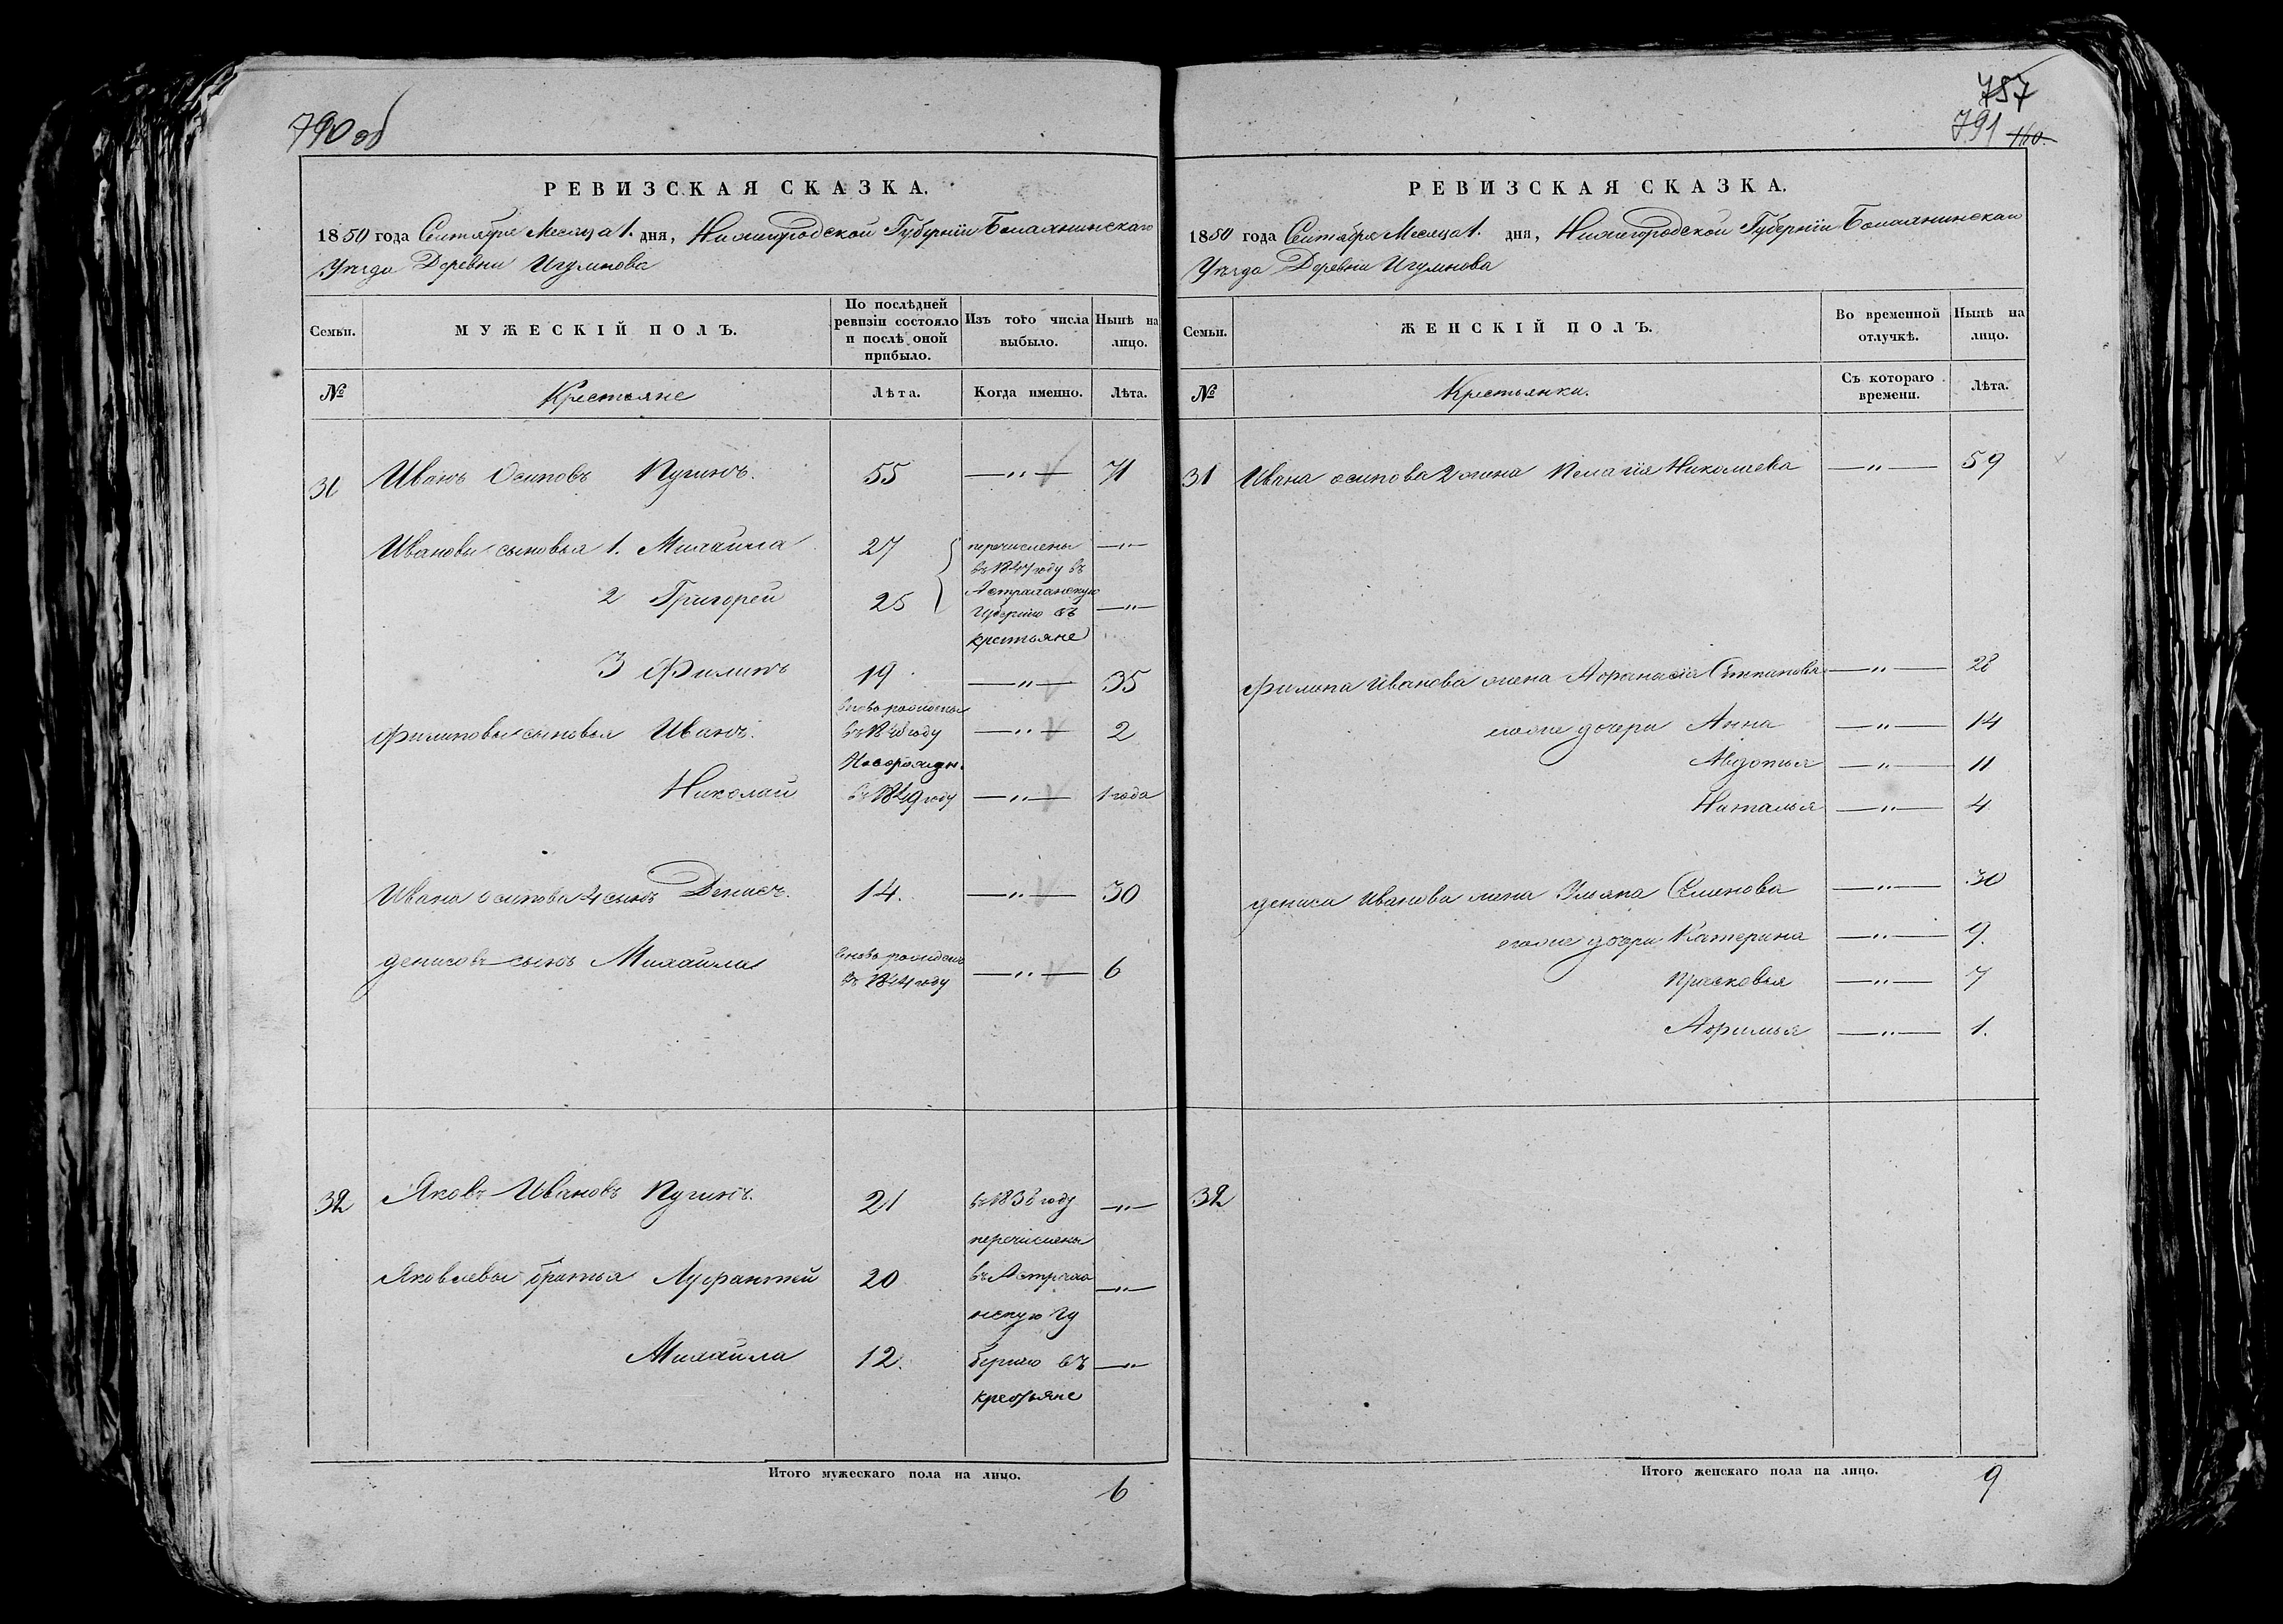 790 об
РЕВИЗСКАЯ СКАЗКА.
1850 года Сентября Месяца 1. дня, Нижегородской Губернiи Балахнинскаго
Уѣзда Деревни Игумнова
Семьи.
МУЖЕСКІЙ ПОЛЪ.
По послѣдней ревизіи состояло и послѣ оной прибыло.
Изъ того числа выбыло.
Нынѣ на лицо.
№
Крестьяне
Лѣта.
Когда именно.
Лѣта.
31 Иванъ Осиповъ Пугинъ. 55 —„— 71
Ивановы сыновья 1. Михайла 27 —„—
2 Григорей 25 —„—
перечислены
въ 1847 году въ
Астраханскую
Губернiю въ
крестьяне
3 Филипъ 19 —„— 35
Филиповы сыновья Иванъ. —„— 2
вновь рожденъ
въ 1848 году
Николай —„— 1 года
Новорожден.
въ 1849 году
Ивана Осипова 4 сынъ Денисъ. 14. —„— 30
денисовъ сынъ Михайла —„— 6
вновь рожденъ
въ 1844 году
32 Яковъ Ивановъ Пугинъ. 21 —„—
Яковлевы братья Луфантей 20 —„—
Михайла 12. —„—
въ 1838 году
перечислены
въ Астраха
нскую Гу
бернiю въ
крестьяне
Итого мужескаго пола на лицо.
6
787
791 160
РЕВИЗСКАЯ СКАЗКА.
1850 года Сентября Месяца 1. дня, Нижегородской Губернiи Балахнинскаго
Уѣзда Деревни Игумнова
Семьи.
ЖЕНСКІЙ ПОЛЪ.
Во временной отлучкѣ.
Нынѣ на лицо.
№
Крестьянки.
Съ котораго времени.
Лѣта.
31 Ивана осипова 2 жена Пелагiя Николаева —„— 59
Филипа Иванова жена Афанасiя Степанова —„— 28
егоже дочери Анна —„— 14
Авдотья —„— 11
Наталья —„— 4
дениса Иванова жена Ульяна Семенова —„— 30
егоже дочери Катерина —„— 9.
Прасковья —„— 7
Афимья —„— 1.
32
Итого женскаго пола на лицо.
9